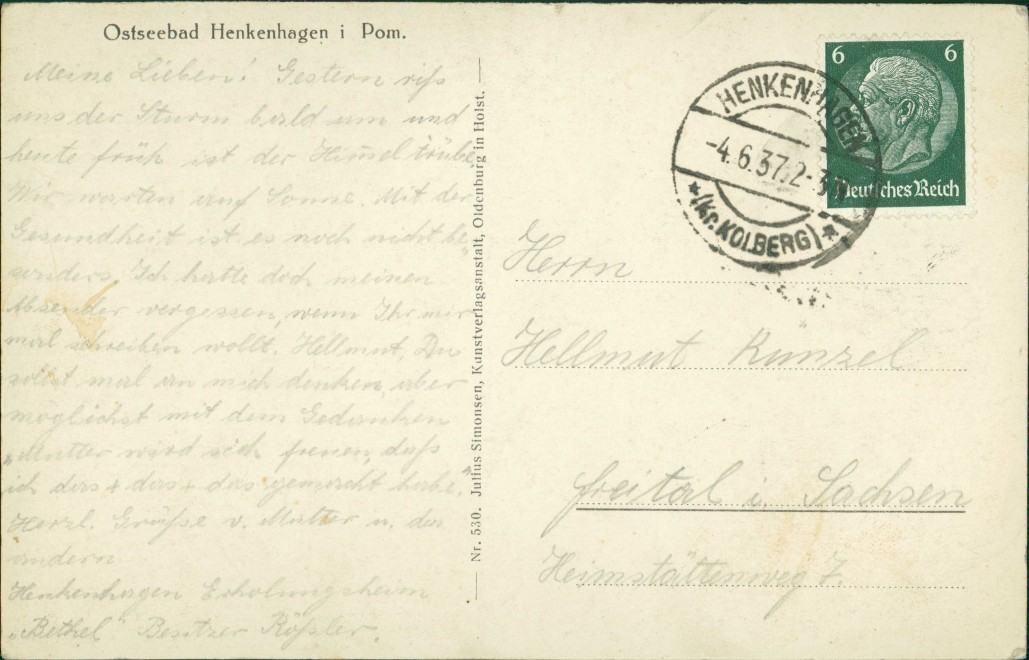 Ostseebad Henkenhagen i Pom.
Meine Lieben! Gestern riß
uns der Sturm bald um und
heute früh ist der Himmel trübe.
Wir warten auf Sonne. Mit der
Gesundheit ist es noch nicht be-
sonders. Ich hatte doch meinen
Absender vergessen, wenn Ihr mir
mal schreiben wollt. Hellmut, Du
sollst mal an mich denken, aber
möglichst mit dem Gedanken
„Mutter wird sich freuen, daß
ich das + das + das gemacht habe."
Herzl. Grüße v. Mutter u. den
andern.
Henkenhagen Erholungsheim
„Bethel" Besitzer Rößler.
Nr. 530. Julius Simonsen, Kunstverlagsanstalt, Oldenburg in Holst.
6 6
Deutsches Reich
HENKENHAGEN
-4.6.37.2-3
*(Kr. KOLBERG)*
Herrn
Hellmut Kunzel
Freital i. Sachsen
Heimstättenweg 7.